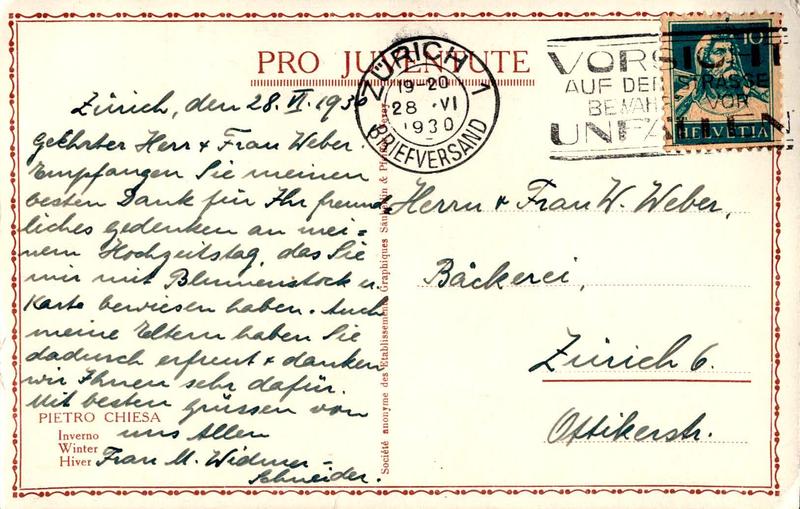 PRO JUVENTUTE
ZÜRICH 1
19-20
28 . VI
1930
BRIEFVERSAND
VORSICHT
AUF DER STRASSE
BEWAHRT VOR
UNFÄLLEN
10
HELVETIA
Zürich, den 28. VI. 1930
Geehrter Herr & Frau Weber.
Empfangen Sie meinen
besten Dank für Ihr freund
liches gedenken an mei=
nem Hochzeitstag, das Sie
mir mit Blumenstock u.
Karte bewiesen haben. Auch
meine Eltern haben Sie
dadurch erfreut & danken
wir Ihnen sehr dafür.
Mit besten Grüssen von
uns Allen
Frau M. Widmer-
Schneider.
PIETRO CHIESA
Inverno
Winter
Hiver
Société anonyme des Etablissements Graphiques
Herrn & Frau W. Weber,
Bäckerei,
Zürich 6.
Ottikerstr.